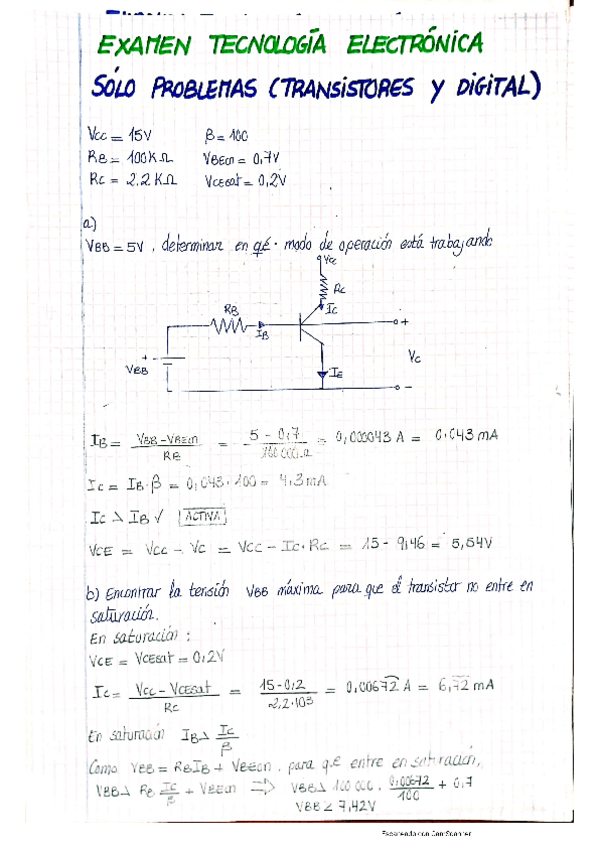 EXAMEN TECNOLOGÍA ELECTRÓNICA
SÓLO PROBLEMAS (TRANSISTORES Y DIGITAL)
Vcc = 15V β = 100
RB = 100KΩ VBEon = 0,7V
Rc = 2.2KΩ VCEsat = 0,2V
a)
VBB = 5V, determinar en qé modo de operación está trabajando
Vcc
Rc
Ic
RB
IB
+
Vc
+ -
VBB
IE
-
IB = VBB - VBEon / RB = 5 - 0,7 / 100 000 Ω = 0,000043 A = 0.043 mA
Ic = IB·β = 0,043·100 = 4,3 mA
Ic > IB √ ACTIVA
VCE = Vcc - Vc = Vcc - Ic·Rc = 15 - 9,46 = 5,54V
b) Encontrar la tensión VBB máxima para que el transistor no entre en
saturación.
En saturación :
VCE = VCEsat = 0,2V
Ic = Vcc - VCEsat / Rc = 15 - 0,2 / 2,2·10³ = 0,00672 A = 6,72 mA
En saturación IB > Ic / β
Como VBB = RB IB + VBEon, para qe entre en saturación,
VBB > RB Ic / β + VBEon => VBB > 100 000 · 0,00672 / 100 + 0,7
VBB < 7,42V
Escaneado con CamScanner